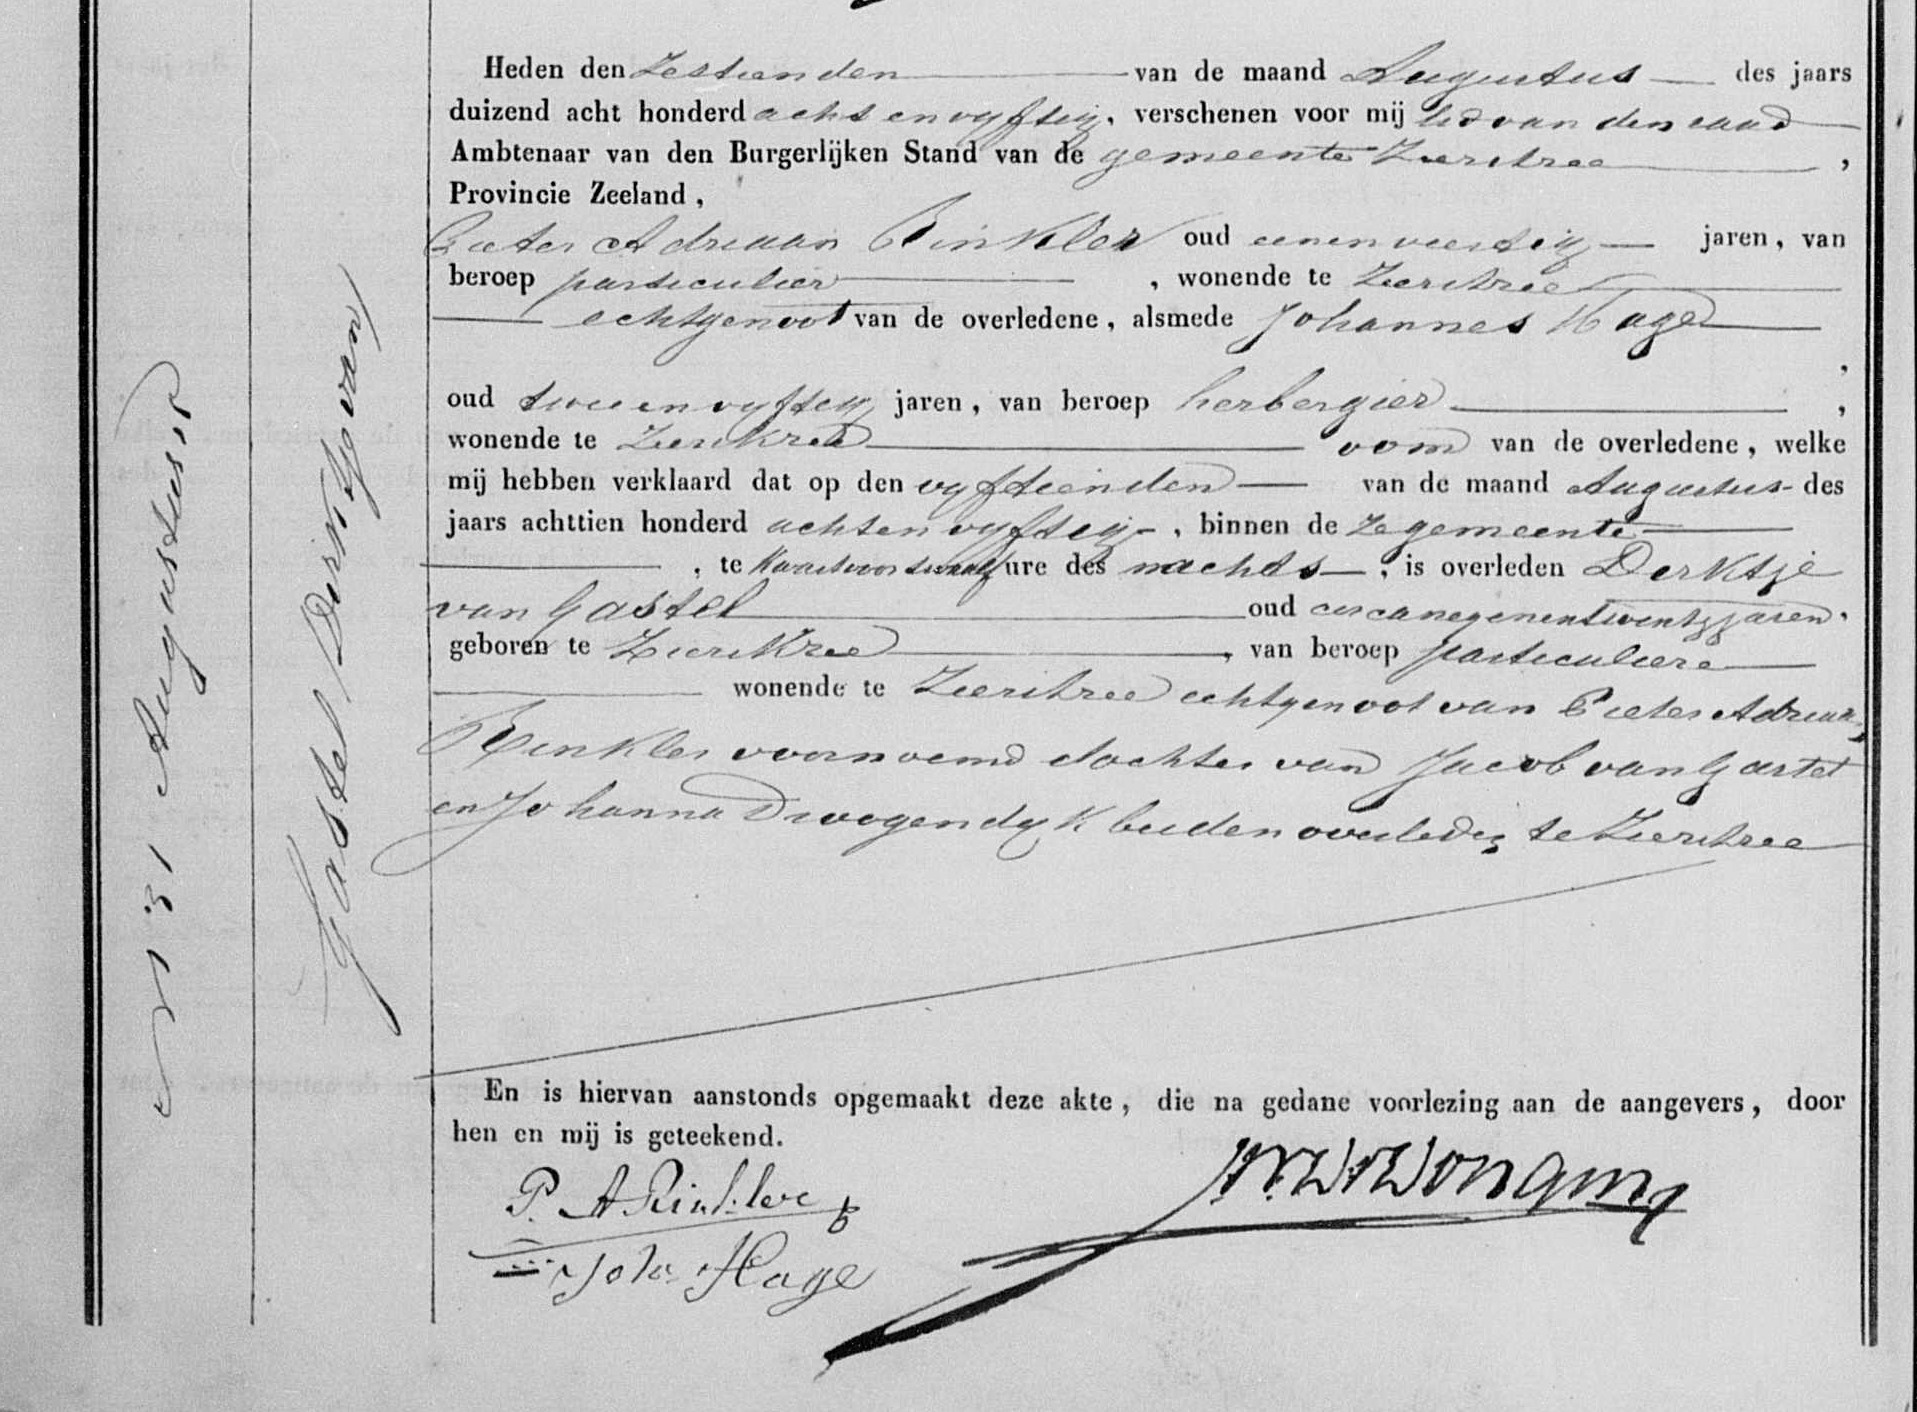 Heden den Zestienden van de maand Augustus des jaars
duizend acht honderd acht en vyftig, verschenen voor mij lid van den raad
Ambtenaar van den Burgerlijken Stand van de gemeente Zierikzee,
Provincie Zeeland,
Pieter Adriaan Rinkler oud eenenveertig jaren, van
beroep particulier, wonende te Zierikzee
echtgenoot van de overledene, alsmede Johannes Hage
,
oud twee en vyftig jaren, van beroep herbergier,
wonende te Zierikzee oom van de overledene, welke
mij hebben verklaard dat op den vyftienden van de maand Augustus des
jaars achttien honderd acht en vyftig, binnen de ze gemeente
, te kwartvoor twaalf ure des nachts, is overleden Derktje
van Gastel oud circa negenentwintig jaren.
geboren te Zierikzee, van beroep particuliere
wonende te Zierikzee echtgenoot van Pieter Adriaan
Rinkler voornoemd dochter van Jacob van Gastel
en Johanna Droogendyk beiden overleden te Zierikzee
En is hiervan aanstonds opgemaakt deze akte, die na gedane voorlezing aan de aangevers, door
hen en mij is geteekend.
P. A Rinkler
Joh. Hage
N 31 Augustus
Gastel / Derktje van /